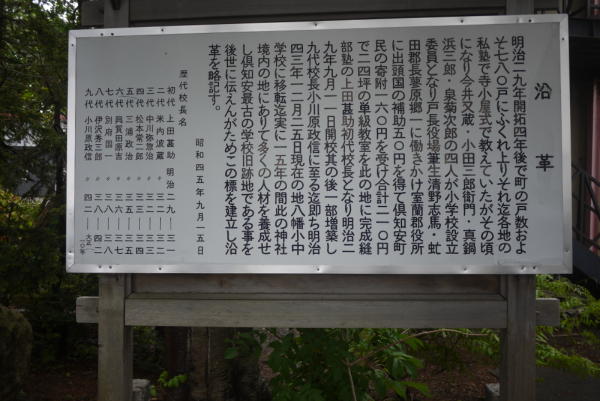 沿革
明治二九年開拓四年後で町の戸数およ
そ七八〇戸にふくれ上りそれ迄各地の
私塾で寺小屋式で教えていたがその頃
になり今井又蔵・小田三郎衛門・真鍋
浜三郎・泉菊次郎の四人が小学校設立
委員となり戸長役場筆生清野志馬・虻
田郡長蓼原郷一に働きかけ室蘭郡役所
に出頭国の補助五〇円を得て倶知安町
民の寄附一六〇円を受け合計二一〇円
で二四坪の単級教室を此の地に完成縫
部塾の上田甚助初代校長となり明治二
九年九月一一日開校其の後一部増築し
九代校長小川原政信に至る迄即ち明治
四三年一二月二五日現在の地八幡小中
学校に移転迄実に一五年の間此の神社
境内の地にありて多くの人材を養成せ
し倶知安最古の学校旧跡地である事を
後世に伝えんがためこの標を建立し沿
革を略記す。
昭和四五年九月一五日
歴代校長名
初代 上田甚助 明治二九―三一
二代 米内波蔵 〃 三一―三二
三代 中川弥惣治 〃 三二―三三
四代 松本常二郎 〃 三三―三四
五代 三浦政治 〃 三五―三五
六代 興賀田原吉 〃 三六―三七
七代 別府国一 〃 三七―三八
八代 伊沢秀三郎 〃 三八―四二
九代 小川原政信 〃 四二―大正一〇年